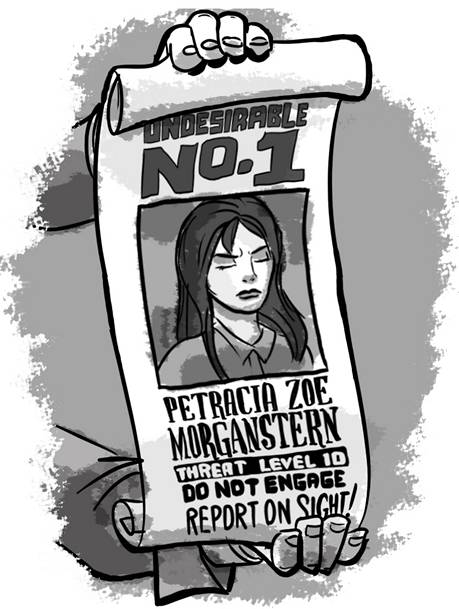 UNDESIRABLE
NO.1
PETRACIA ZOE
MORGANSTERN
THREAT LEVEL 10
DO NOT ENGAGE
REPORT ON SIGHT!